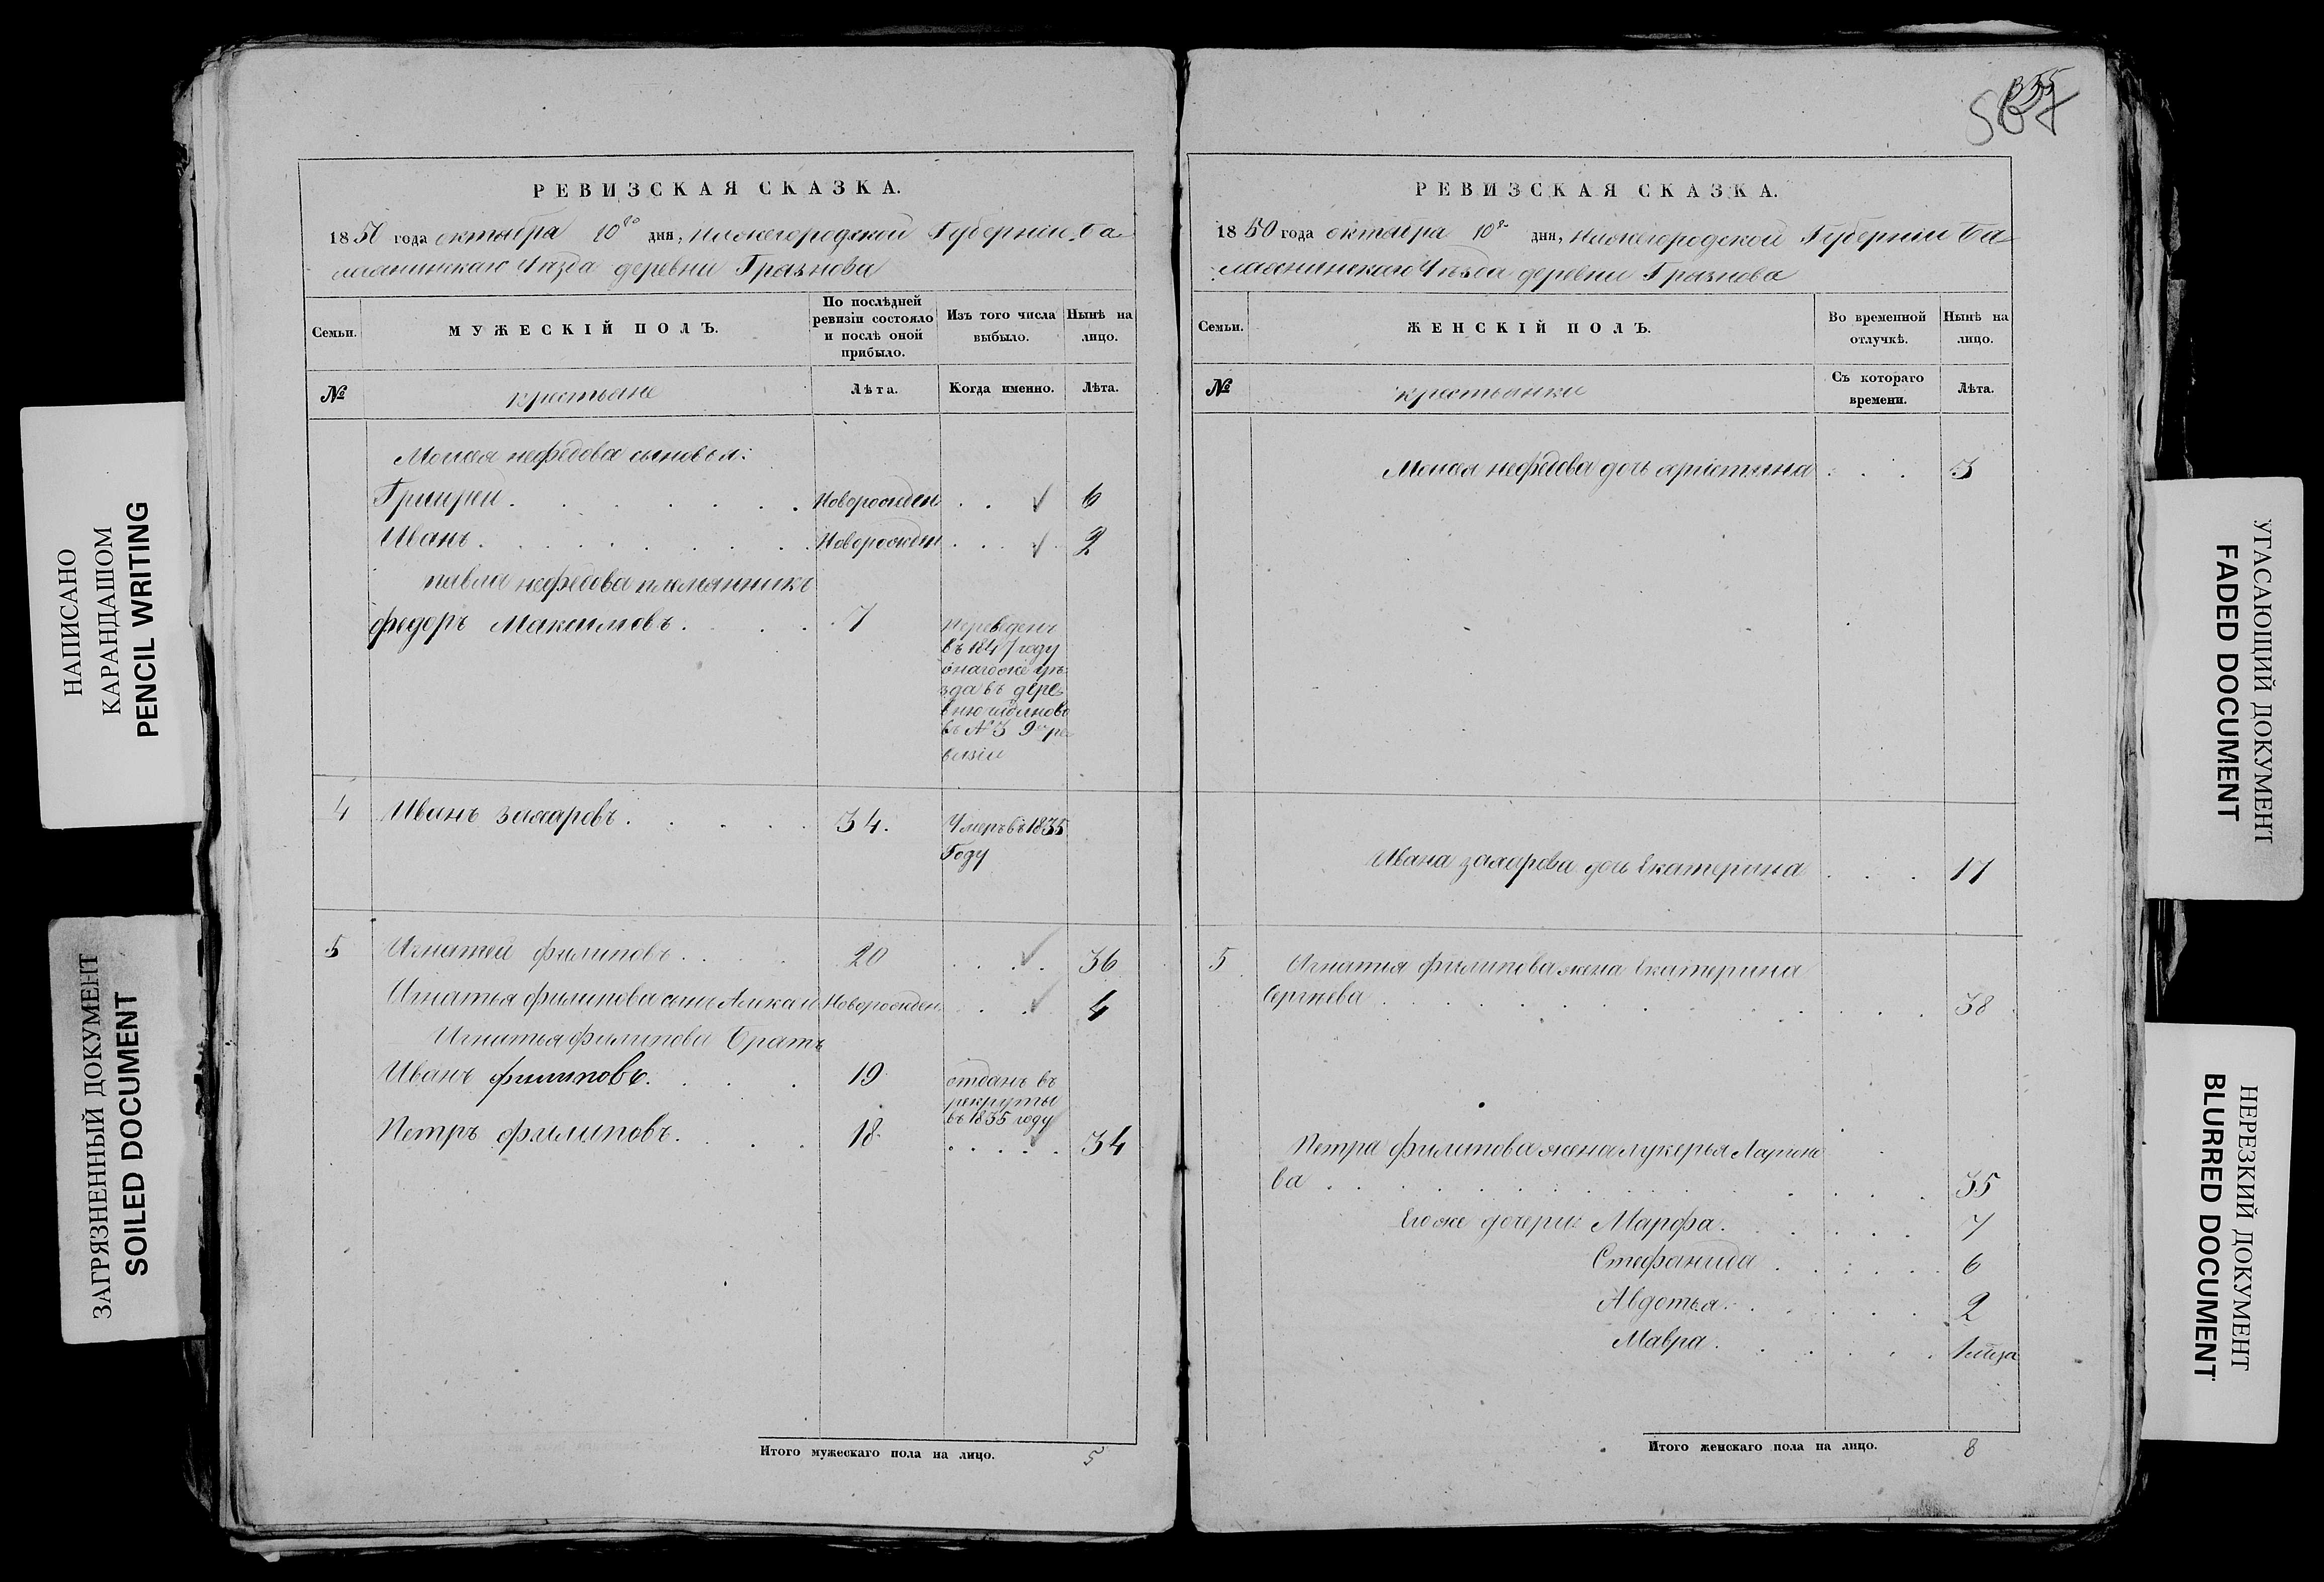 355
РЕВИЗСКАЯ СКАЗКА.
1850 года октября 10го дня, Нижегородской Губернiи Ба-
лахнинскаго Уѣзда деревни Грязнова
Семьи.
МУЖЕСКІЙ ПОЛЪ.
По послѣдней ревизіи состояло и послѣ оной прибыло.
Изъ того числа выбыло.
Нынѣ на лицо.
№
крестьяне
Лѣта.
Когда именно.
Лѣта.
Моисея нефедова сыновья:
Григрей новорожден 6
Иванъ новорожден 2
павла нефедова племянникъ
федоръ Максимовъ 7
Переведенъ
въ 1847 году
онагоже уѣ-
зда въ дере-
вню
въ № 3 9й ре-
визiи
4 Иванъ захаровъ 34. Умеръ въ 1835
Году
5 Игнатей филиповъ 20 36
Игнатья филипова сынъ новорожден 4
Игнатья филипова Братъ
Иванъ филиповъ. 19 отданъ въ
рекруты
въ 1835 году
Петръ филиповъ. 18 34
Итого мужескаго пола на лицо. 5
РЕВИЗСКАЯ СКАЗКА.
1850 года октября 10го дня, Нижегородской Губернiи Ба-
лахнинскаго Уѣзда деревни Грязнова
Семьи.
ЖЕНСКІЙ ПОЛЪ.
Во временной отлучкѣ.
Нынѣ на лицо.
№
крестьянки
Съ котораго времени.
Лѣта.
Моисея нефедова дочь христина 3
Ивана захарова дочь Екатерина 17
5 Игнатия филипова жена Екатерина
Сергѣева 38
Петра филипова жена лукерья Ларионо
ва 35
Егоже дочери: Марфа. 7
Стефанида 6
Авдотья. 2
Мавра. 1
Итого женскаго пола на лицо. 8
НАПИСАНО
КАРАНДАШОМ
PENCIL WRITING
ЗАГРЯЗНЕННЫЙ ДОКУМЕНТ
SOILED DOCUMENT
УГАСАЮЩИЙ ДОКУМЕНТ
FADED DOCUMENT
НЕРЕЗКИЙ ДОКУМЕНТ
BLURRED DOCUMENT